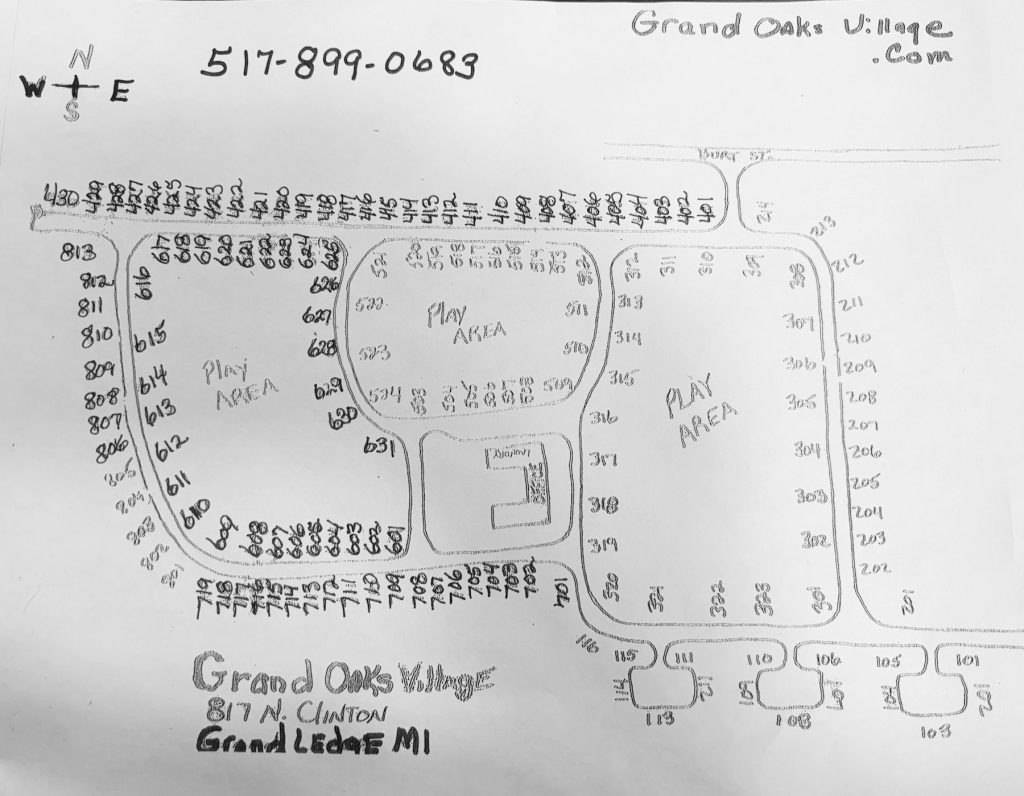 Grand Oaks Village
.Com
517-899-0683
N
W E
S
BURT ST.
430 429 428 427 426 425 424 423 422 421 420 419 418 417 416 415 414 413 412 411 410 409 408 407 406 405 404 403 402 401
214
213
212
211
210
209
208
207
206
205
204
203
202
201
813
812
811
810
809
808
807
806
805
804
803
802
801
617 618 619 620 621 622 623 624 625
616
615
614
613
612
611
610
609 608 607 606 605 604 603 602 601
626
627
628
629
630
631
PLAY
AREA
521 520 519 518 517 516 515 514 513 512
522
523
524 503 504 505 506 507 508 509
510
511
PLAY
AREA
LAUNDRY
OFFICE
312 311 310 309 308
313
314
315
316
317
318
319
320 321 322 323 301
307
306
305
304
303
302
PLAY
AREA
719 718 717 716 715 714 713 712 711 710 709 708 707 706 705 704 703 702 701
116
115 111 110 106 105 101
114 112 109 107 104 102
113 108 103
Grand Oaks Village
817 N. CLINTON
Grand LEDGE MI